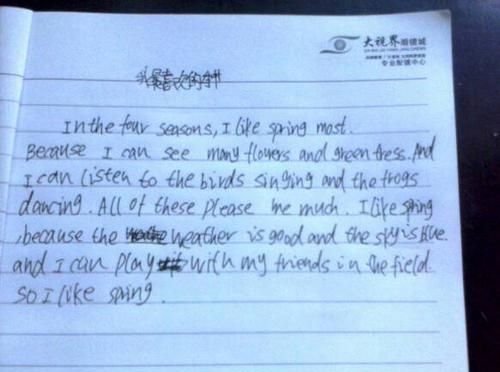 大视界眼镜城
专业配镜中心
我最喜欢的季节
In the four seasons, I like spring most.
Because I can see many flowers and green tress. And
I can listen to the birds singing and the frogs
dancing. All of these please me much. I like spring
because the weather is good and the sky is blue.
and I can play with my friends in the field.
so I like spring.